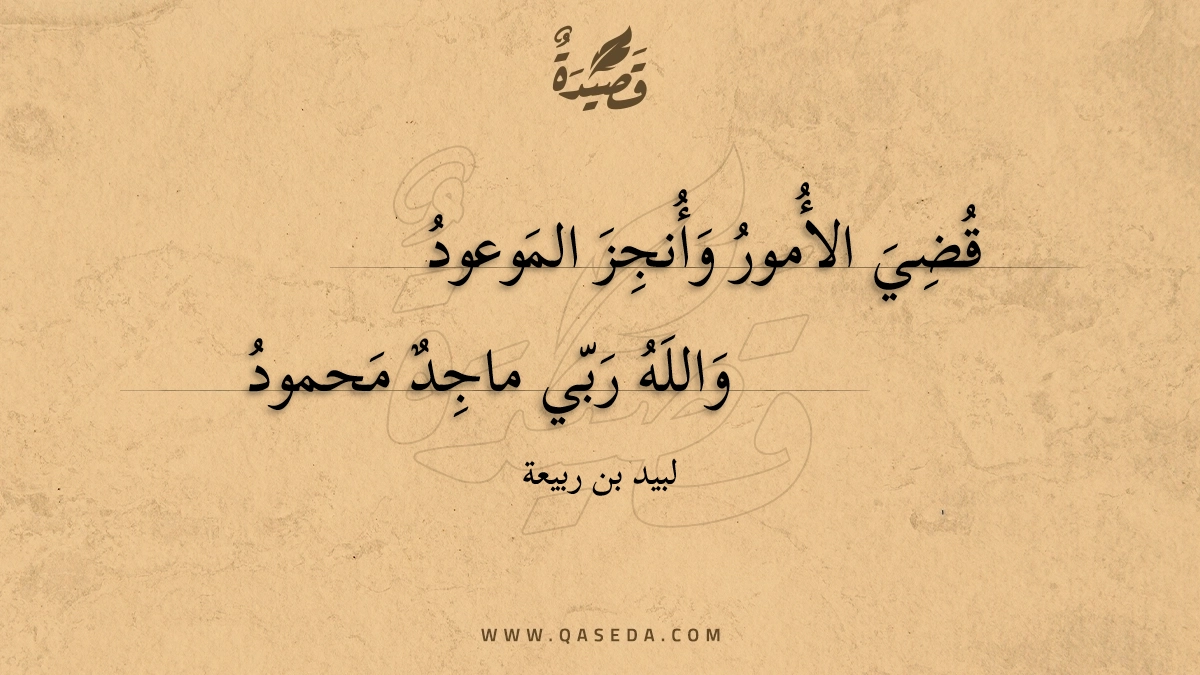 قَصِيْدَةٌ
قُضِيَ الأُمورُ وَأُنجِزَ المَوعودُ
وَاللَهُ رَبّي ماجِدٌ مَحمودُ
لبيد بن ربيعة
WWW.QASEDA.COM